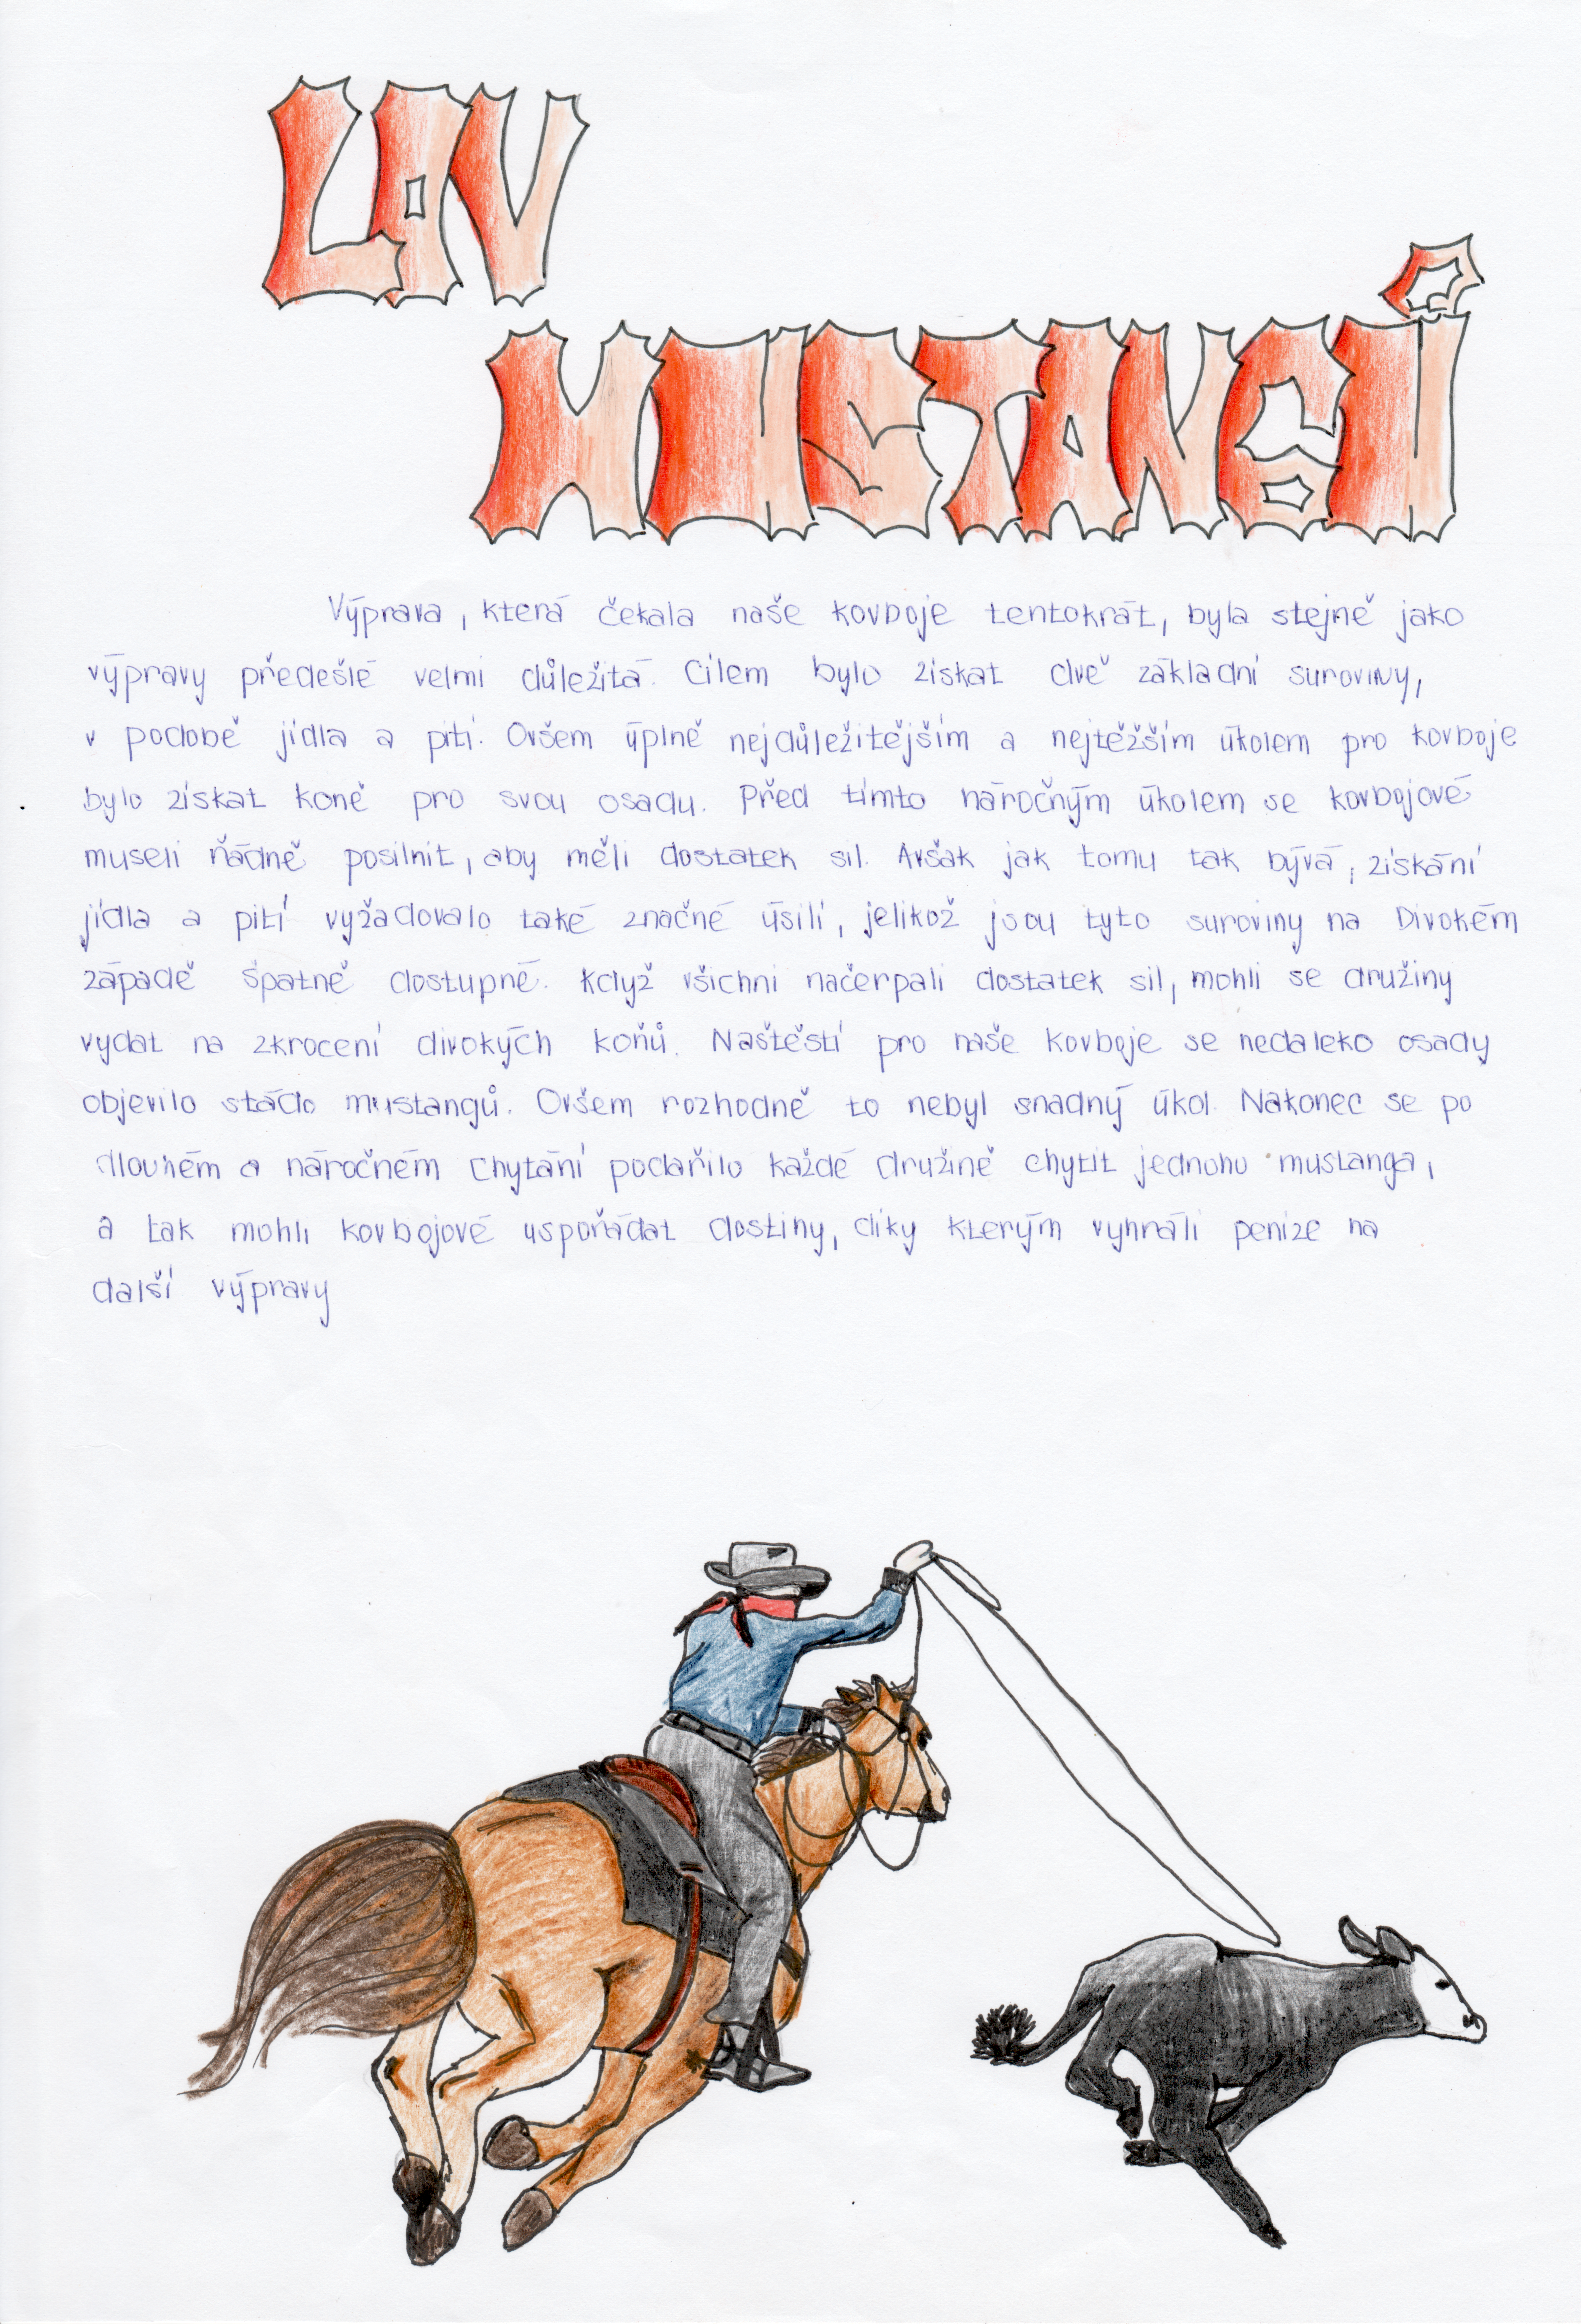 LOV
MUSTANGŮ
Výprava, která čekala naše kovboje tentokrát, byla stejně jako
výpravy předešlé velmi důležitá. Cílem bylo získat dvě základní suroviny,
v podobě jídla a pití. Ovšem úplně nejdůležitějším a nejtěžším úkolem pro kovboje
bylo získat koně pro svou osadu. Před tímto náročným úkolem se kovbojové
museli řádně posilnit, aby měli dostatek sil. Avšak jak tomu tak bývá, získání
jídla a pití vyžadovalo také značné úsilí, jelikož jsou tyto suroviny na Divokém
západě špatně dostupné. Když všichni načerpali dostatek sil, mohli se družiny
vydat na zkrocení divokých koňů. Naštěstí pro naše kovboje se nedaleko osady
objevilo stádo mustangů. Ovšem rozhodně to nebyl snadný úkol. Nakonec se po
dlouhém a náročném chytání podařilo každé družině chytit jednoho mustanga,
a tak mohli kovbojové uspořádat dostihy, díky kterým vyhráli peníze na
další výpravy